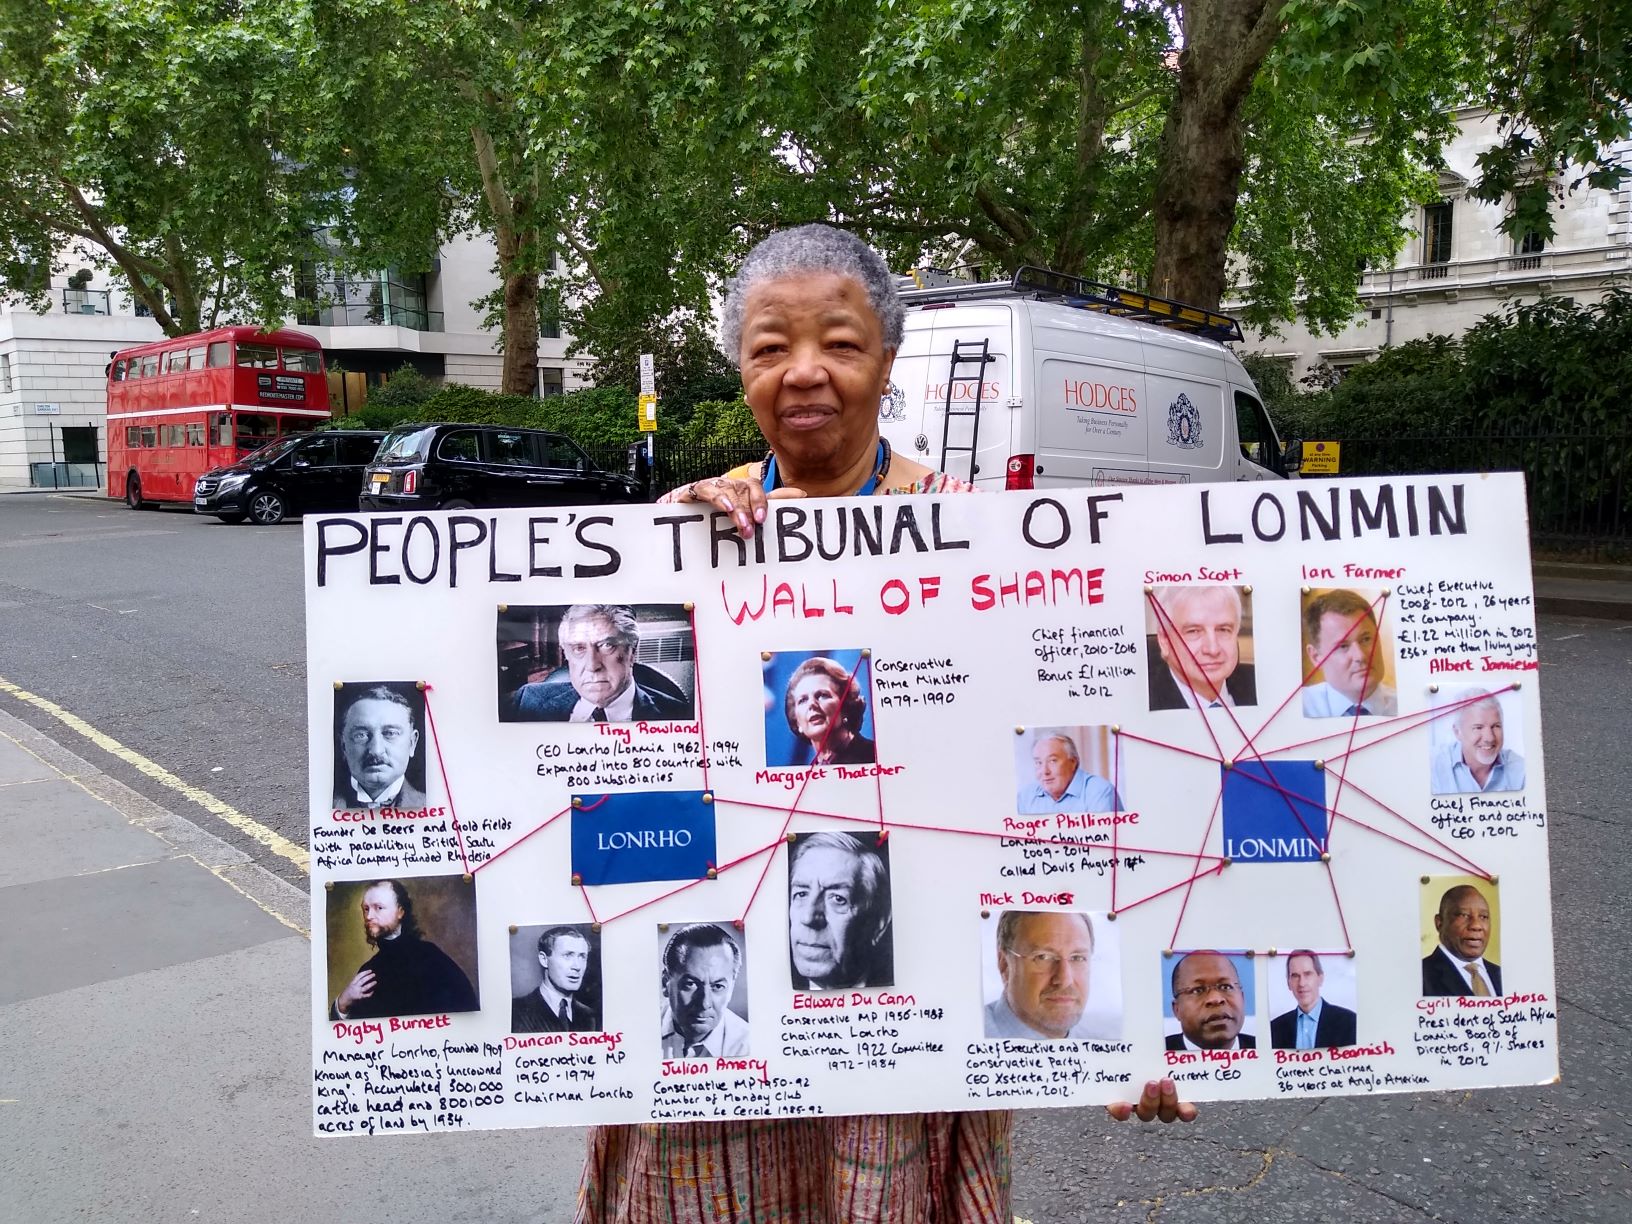 PEOPLE'S TRIBUNAL OF LONMIN
WALL OF SHAME
Cecil Rhodes
Founder De Beers and Gold Fields
with paramilitary British South
Africa Company founded Rhodesia
Digby Burnett
Manager Lonrho, founded 1909
Known as 'Rhodesia's uncrowned
King'. Accumulated 300,000
cattle head and 800,000
acres of land by 1934.
Tiny Rowland
CEO Lonrho/Lonmin 1962-1994
Expanded into 80 countries with
800 subsidiaries
LONRHO
Duncan Sandys
Conservative MP
1950-1974
Chairman Lonrho
Margaret Thatcher
Conservative
Prime Minister
1979-1990
Julian Amery
Conservative MP 1950-92
Member of Monday Club
Chairman Le Cercle 1985-92
Edward Du Cann
Conservative MP 1956-1987
Chairman Lonrho
Chairman 1922 Committee
1972-1984
Simon Scott
Chief financial
officer, 2010-2016
Bonus £1 million
in 2012
Ian Farmer
Chief Executive
2008-2012, 26 years
at company.
£1.22 Million in 2012
236x more than living wage
Albert Jamieson
Chief Financial
officer and acting
CEO, 2012
Roger Phillimore
Lonmin Chairman
2009-2014
Called Davis August
LONMIN
Mick Davis
Chief Executive and Treasurer
Conservative Party.
CEO Xstrata, 24.9% Shares
in Lonmin, 2012.
Ben Magara
Current CEO
Brian Beamish
Current Chairman
36 years at Anglo American
Cyril Ramaphosa
President of South Africa
Lonmin Board of
Directors, 9% Shares
in 2012
HODGES
Taking Business Personally
for Over a Century
HODGES
PRIVATE
REDROUTEMASTER.COM
WARNING